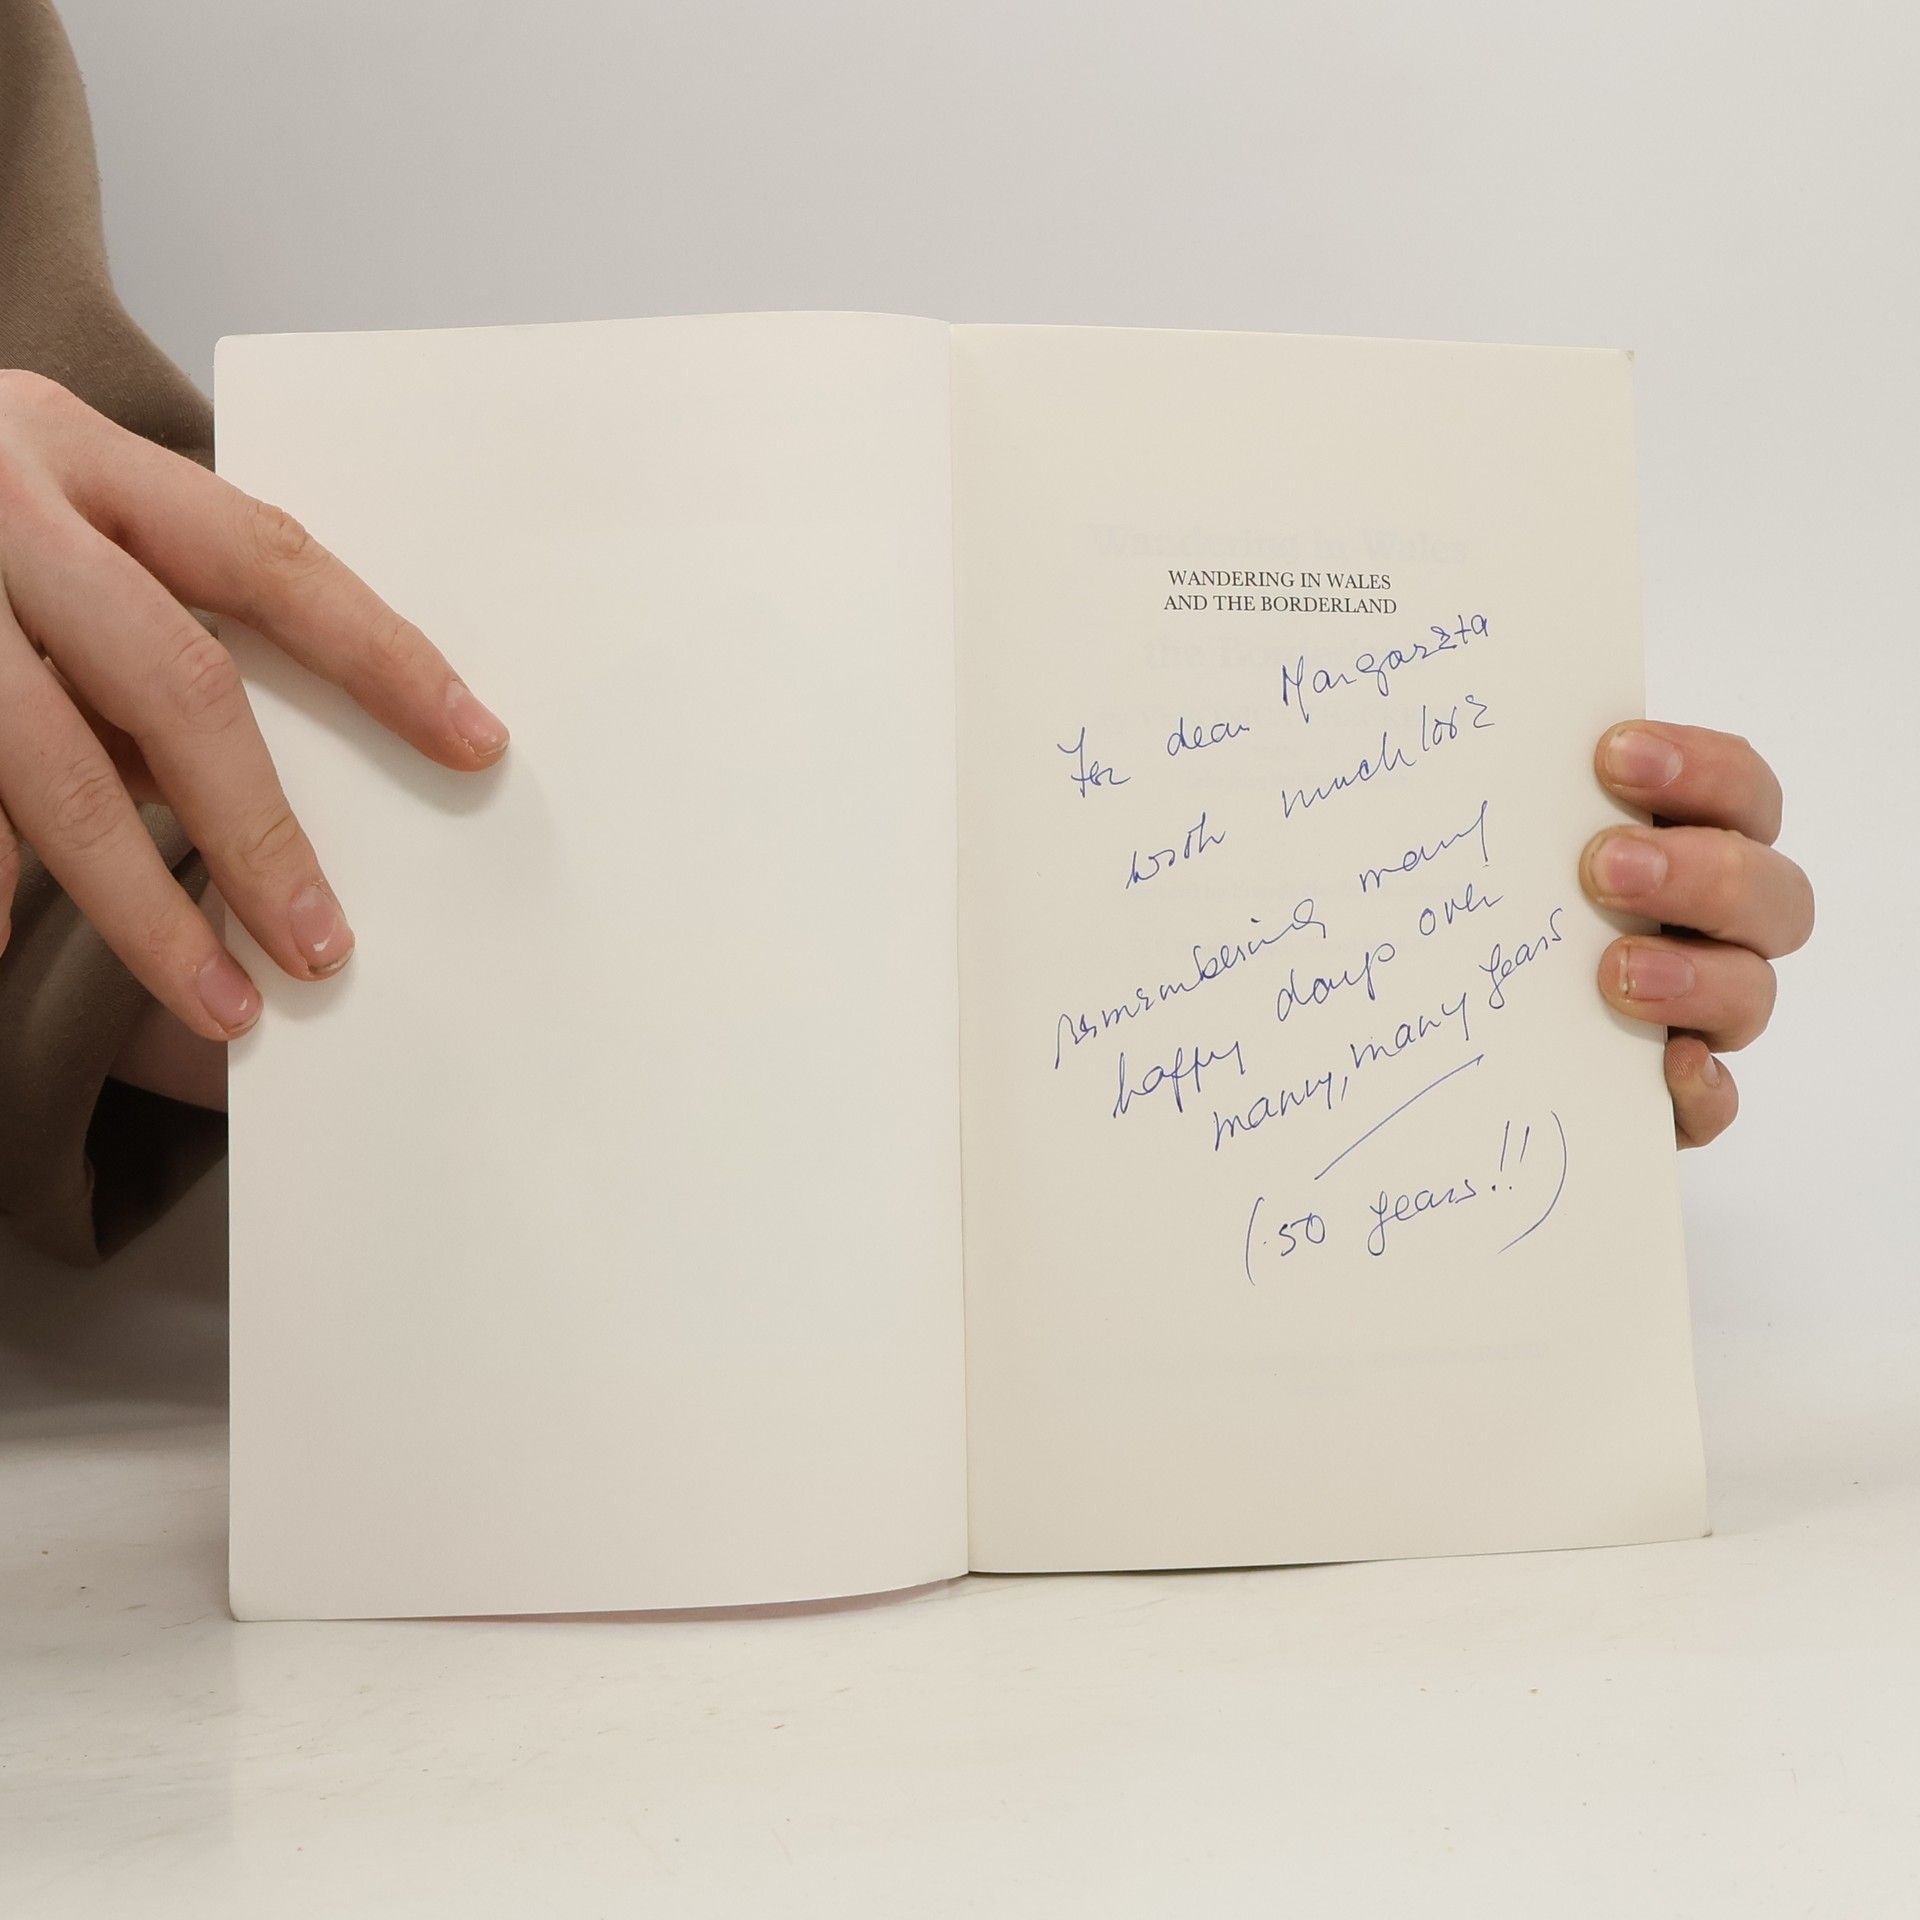 Wandering in Wales
WANDERING IN WALES
AND THE BORDERLAND
the Borderland
For dear Margareta
with much love
remembering many
happy days over
many, many years
(50 years!!)